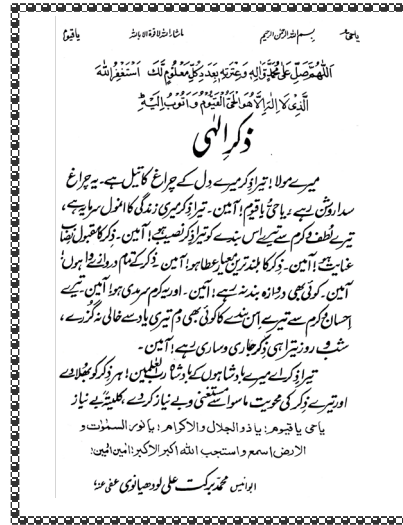 یا حی بسم اللہ الرحمن الرحیم ماشاء اللہ لا قوۃ الا باللہ یا قیوم
اَللّٰهُمَّ صَلِّ عَلٰی مُحَمَّدٍ وَّاٰلِهٖ وَعِتْرَتِهٖ بِعَدَدِ كُلِّ مَعْلُوْمٍ لَّكَ اَسْتَغْفِرُ اللهَ
الَّذِیْ لَا اِلٰهَ اِلَّا هُوَ الْحَیُّ الْقَیُّوْمُ وَاَتُوْبُ اِلَیْهِ
ذکرِ الٰہی
میرے مولا! تیرا ذکر میرے دل کے چراغ کا تیل ہے۔ یہ چراغ
سدا روشن رہے، یا حیُّ یا قیوم! آمین۔ تیرا ذکر میری زندگی کا انمول سرمایہ ہے،
تیرے لطف و کرم سے تیرے اس بندے کو تیرا ذکر نصیب ہو! آمین۔ ذکر کا مقبول نصاب
عنایت ہو! آمین۔ ذکر کا بلند ترین معیار عطا ہو! آمین۔ ذکر کے تمام دروازے وا ہوں!
آمین۔ کوئی بھی دروازہ بند نہ رہے! آمین۔ اور یہ کرم سرمدی ہو! آمین۔ تیرے
احسان و کرم سے تیرے اس بندے کا کوئی بھی دم تیری یاد سے خالی نہ گزرے،
شب و روز تیرا ہی ذکر جاری و ساری رہے! آمین۔
تیرا ذکر اے میرے بادشاہوں کے بادشاہ رب العٰلمین! ہر ذکر کو بھلا دے
اور تیرے ذکر کی محویت ماسوا سے مستغنی و بے نیاز کر دے، کلیتہً بے نیاز
یا حی یا قیوم؛ یا ذو الجلال والاکرام؛ یا نور السمٰوٰت و
الارض اسمع واستجب اللہ اکبر الاکبر؛ امین امین؛
ابو انیس محمد برکت علی لودھیانوی عفی عنہ